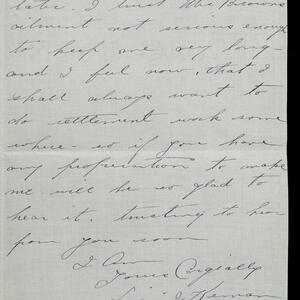 later. I trust Mr Browns
ailment not serious enough
to keep me very long-
and I feel now, that I
shall always want to
do settlement work some
where- so if you have
any proposition to make
me will be so glad to
hear it. trusting to hear
from you soon
I am
Yours Cordially